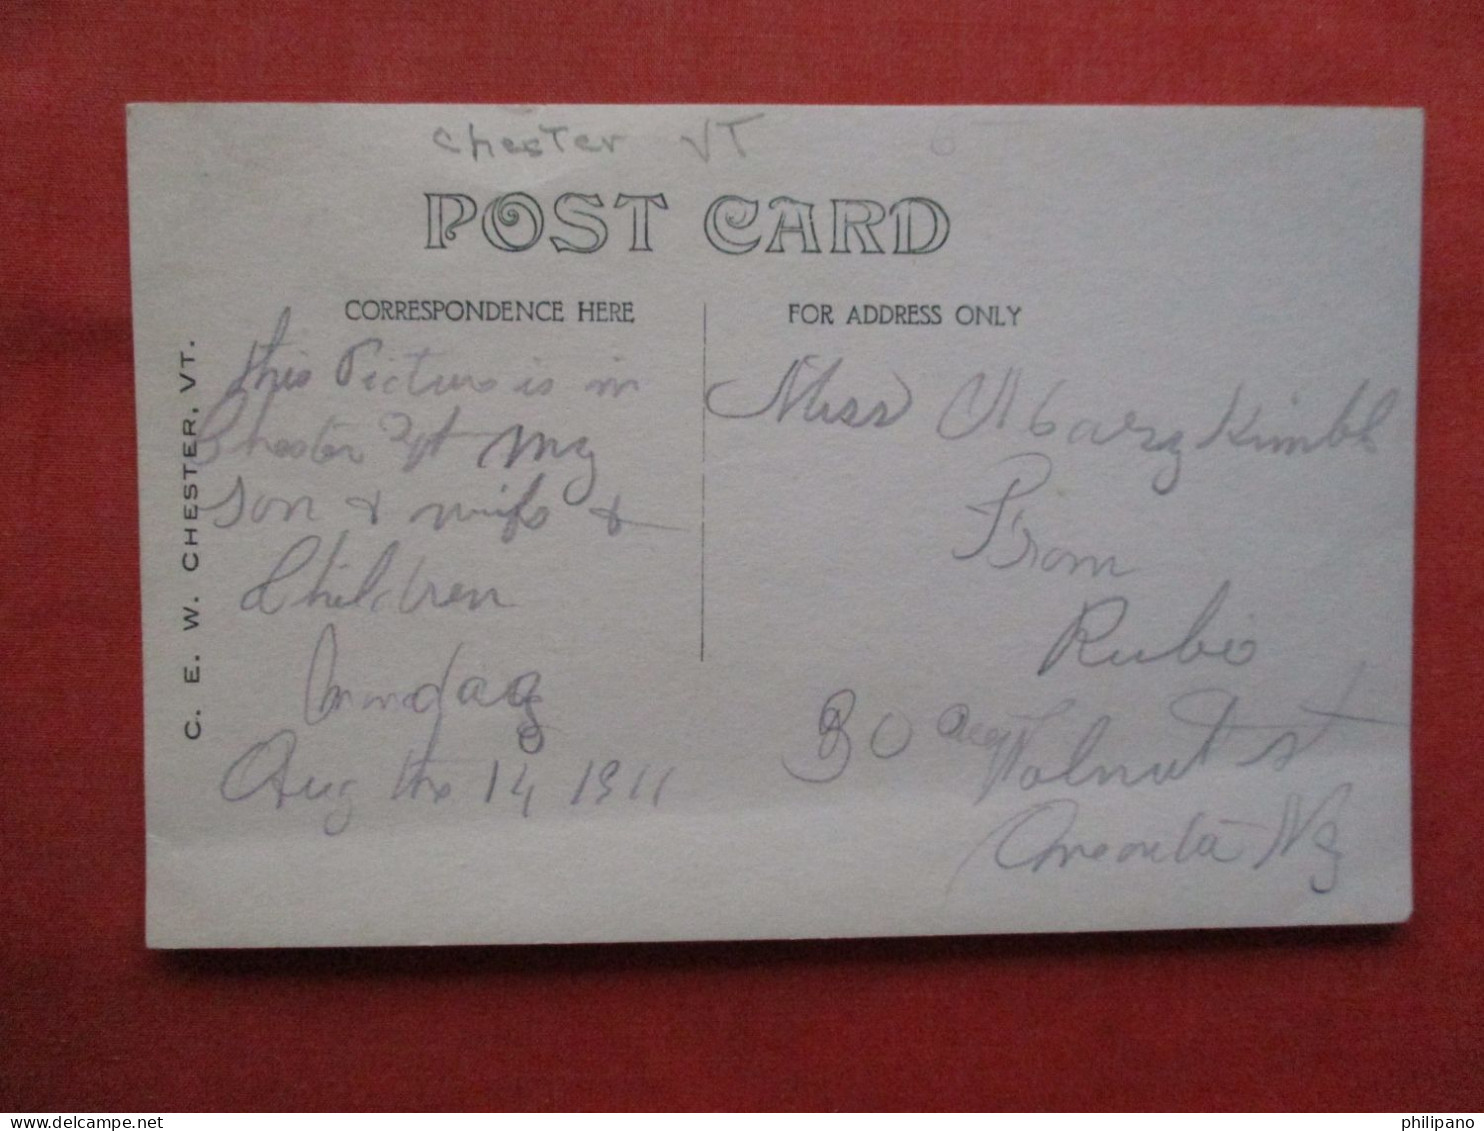 Chester VT
POST CARD
CORRESPONDENCE HERE
FOR ADDRESS ONLY
C. E. W. CHESTER, VT.
this Picture is in
Chester Vt my
son & wife &
Children
Aug the 14, 1911
Miss Mary Kimbl
From
Rubie
80 Walnut st
Oneonta Ny
delcampe.net
philipano